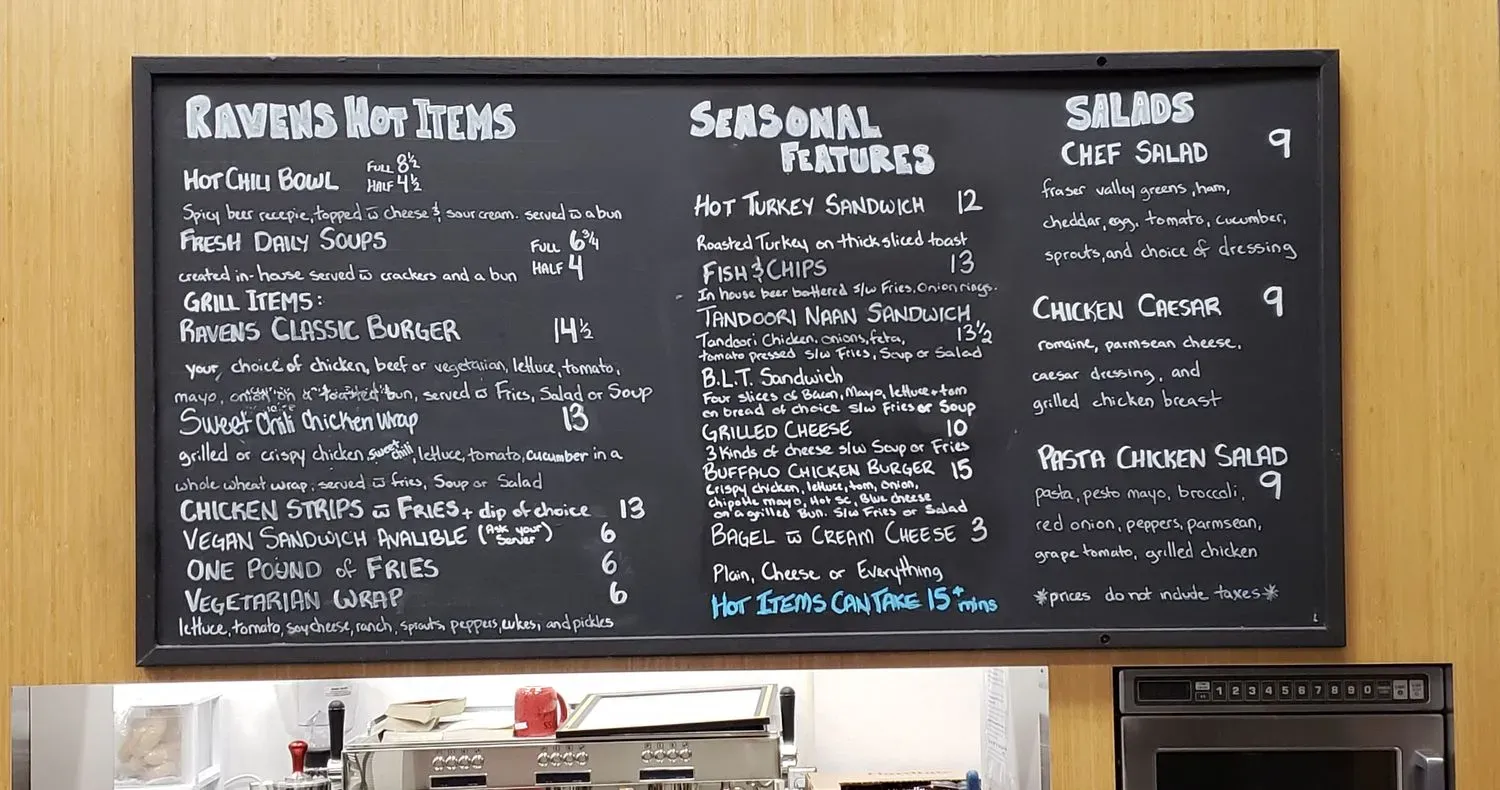 RAVENS HOT ITEMS
HOT CHILI BOWL FULL 8½
HALF 4½
Spicy beer recepie, topped w cheese & sour cream. served w a bun
FRESH DAILY SOUPS FULL 6¾
created in-house served w crackers and a bun HALF 4
GRILL ITEMS:
RAVENS CLASSIC BURGER 14½
your choice of chicken, beef or vegetarian, lettuce, tomato,
mayo, onion on a toasted bun, served w Fries, Salad or Soup
Sweet Chili Chicken Wrap 13
grilled or crispy chicken, sweet chili, lettuce, tomato, cucumber in a
whole wheat wrap, served w fries, Soup or Salad
CHICKEN STRIPS w FRIES + dip of choice 13
VEGAN SANDWICH AVALIBLE (Ask your Server) 6
ONE POUND of FRIES 6
VEGETARIAN WRAP 6
lettuce, tomato, soy cheese, ranch, sprouts, peppers, cukes, and pickles
SEASONAL
FEATURES
HOT TURKEY SANDWICH 12
Roasted Turkey on thick sliced toast
FISH & CHIPS 13
In house beer battered s/w Fries, Onion rings.
TANDOORI NAAN SANDWICH
Tandoori Chicken, onions, feta, 13½
tomato pressed s/w Fries, Soup or Salad
B.L.T. Sandwich
Four slices of Bacon, Mayo, lettuce + tom
on bread of choice s/w Fries or Soup
GRILLED CHEESE 10
3 Kinds of cheese s/w Soup or Fries
BUFFALO CHICKEN BURGER 15
Crispy chicken, lettuce, tom, onion,
chipotle mayo, Hot Sc, Blue cheese
on a grilled Bun. S/w Fries or Salad
BAGEL w CREAM CHEESE 3
Plain, Cheese or Everything
HOT ITEMS CAN TAKE 15+ mins
SALADS
CHEF SALAD 9
fraser valley greens, ham,
cheddar, egg, tomato, cucumber,
sprouts, and choice of dressing
CHICKEN CAESAR 9
romaine, parmsean cheese,
caesar dressing, and
grilled chicken breast
PASTA CHICKEN SALAD
pasta, pesto mayo, broccoli, 9
red onion, peppers, parmsean,
grape tomato, grilled chicken
*prices do not include taxes*
1 2 3 4 5 6 7 8 9 0